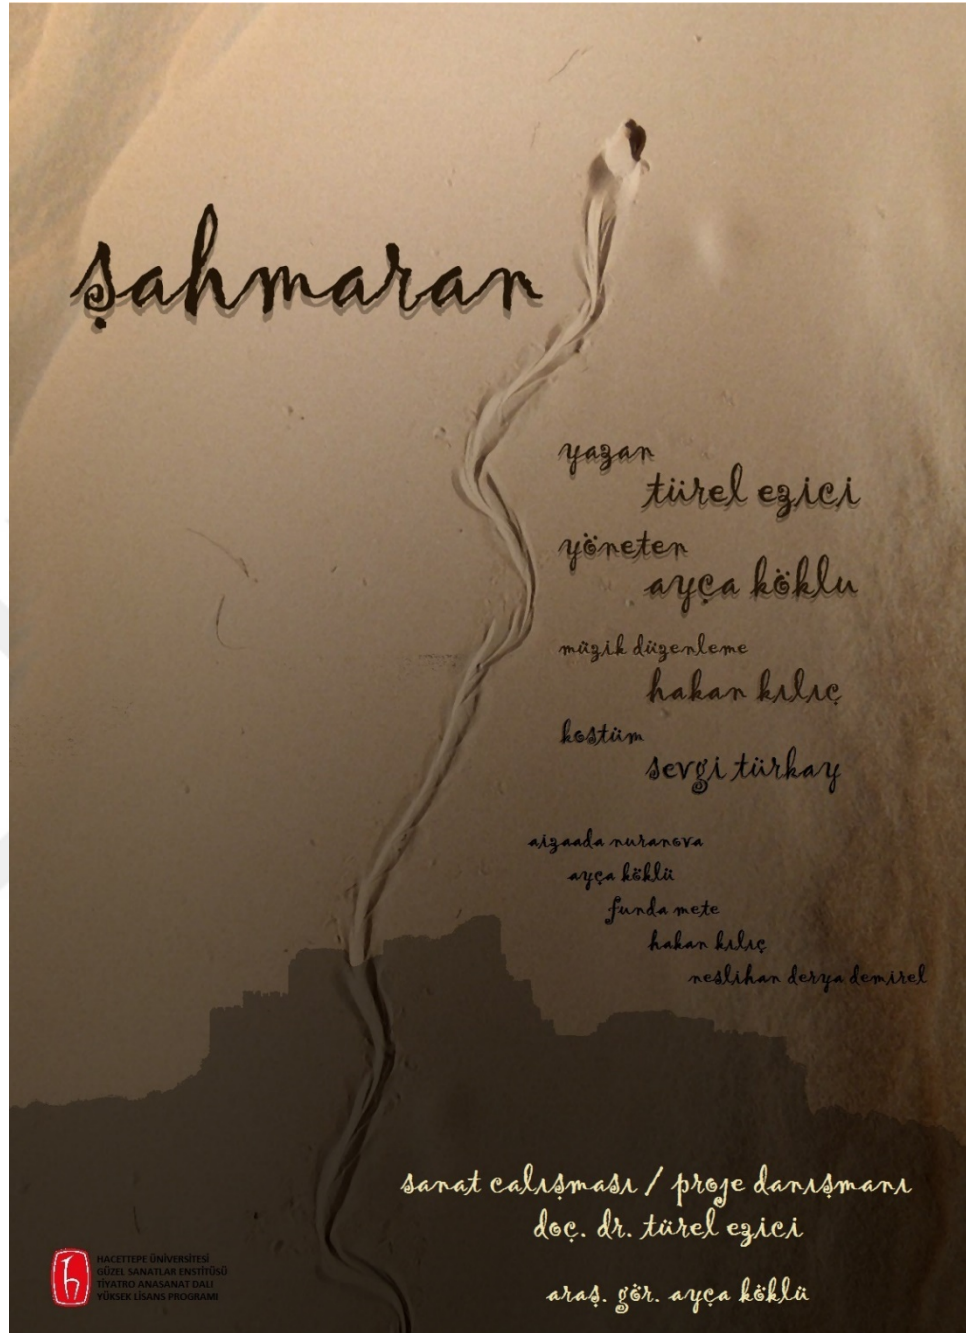 şahmaran
yazan
türel ezici
yöneten
ayça köklu
müzik düzenleme
hakan kılıç
kostüm
sevgi türkay
aizaada nuranova
ayça köklü
funda mete
hakan kılıç
neslihan derya demirel
sanat calışması / proje danışmanı
doç. dr. türel ezici
araş. gör. ayça köklü
HACETTEPE ÜNİVERSİTESİ
GÜZEL SANATLAR ENSTİTÜSÜ
TİYATRO ANASANAT DALI
YÜKSEK LİSANS PROGRAMI